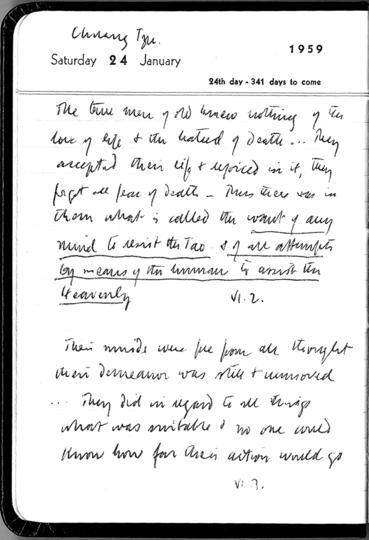 Chuang Tzu.
1959
Saturday 24 January
24th day - 341 days to come
The true men of old knew nothing of the
love of life & the hatred of death... They
accepted their life & rejoiced in it, they
forgot all fear of death – Thus there was in
them what is called the want of any
mind to resist the Tao & of all attempts
by means of the human to assist the
Heavenly VI. 2.
Their minds were free from all thought
their demeanor was still & unmoved
... They did in regard to all things
what was suitable & no one could
know how far their action would go
VI. 3.